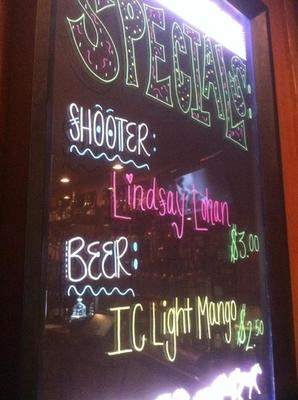 SPECIALS:
SHOOTER:
Lindsay Lohan
$3.00
BEER:
IC Light Mango
$2.50